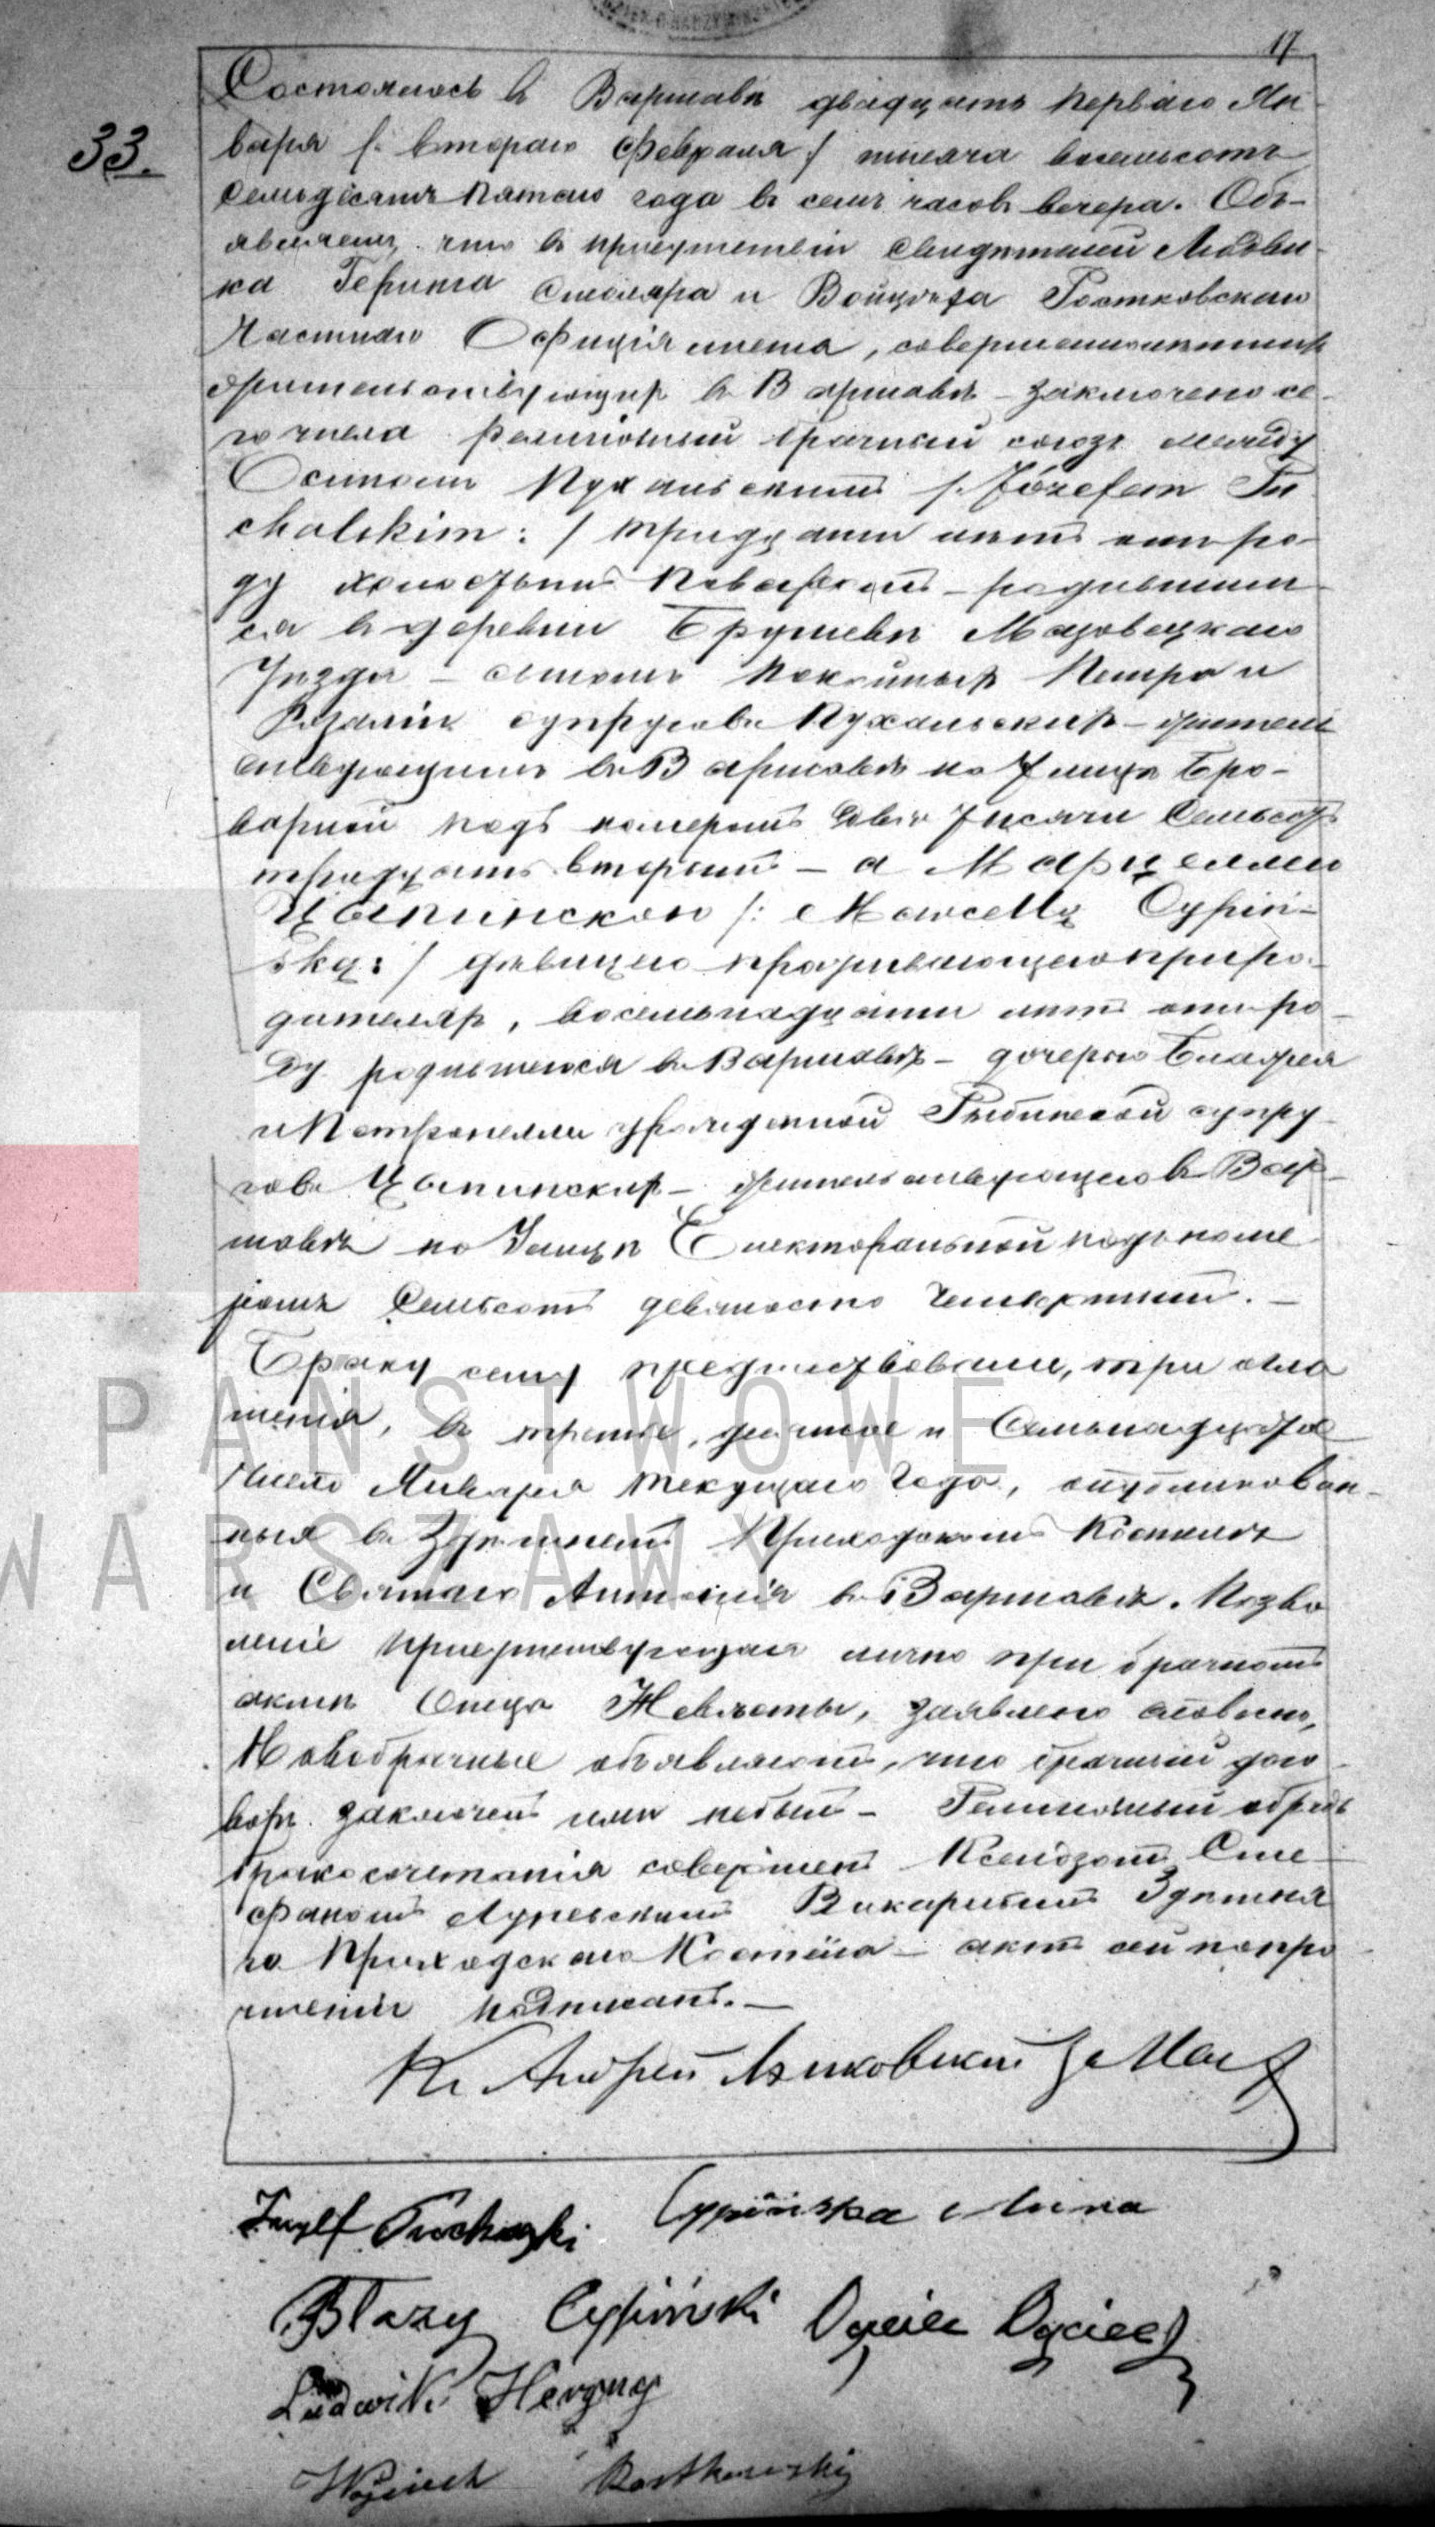 17
33.
Состоялось въ Варшавѣ двадцать перваго Ян-
варя /: втораго Февраля :/ тысяча восемьсотъ
семьдесятъ пятаго года въ семь часовъ вечера. Объ-
являемъ, что въ присутствіи свидѣтелей Людови-
ка столяра и Войцѣха Ростковскаго
Частнаго Оффиціялиста, совершеннолѣтнихъ
жительствующихъ въ Варшавѣ – заключено се-
го числа религіозный брачный союзъ между
Осипомъ Пухальскимъ /: Józefem Pu
chalskim :/ тридцати лѣтъ отъ ро-
ду холостымъ поваромъ – родившим-
ся въ деревни Брушевѣ Мазовецкаго
Уѣзда – сыномъ покойныхъ Петра и
Розаліи супруговъ Пухальскихъ – житель
ствующимъ въ Варшавѣ по Улицѣ Бро-
варной подъ номеромъ двѣ тысячи семьсотъ
тридцать вторымъ – а Марцеллою
Цыпинскою /: Marcellą Cypiń-
ską :/ дѣвицею проживающею при ро-
дителяхъ, восемьнадцати лѣтъ отъ ро-
ду родившеюся въ Варшавѣ – дочерью Блажея
и Петронелли урожденной супру-
говъ Цыпинскихъ – жительствующею въ Вар-
шавѣ по Улицѣ Електоральной подъ номе-
ромъ семьсотъ девяносто четвертымъ. –
Браку сему предшествовали, три огла
шенія, въ третье, десятое и семьнадцатое
число Января текущаго года, опубликован-
ныя въ Здѣшнемъ Приходскомъ Костелѣ
и Святаго Антонія въ Варшавѣ. Позво
леніе присутствующаго лично при брачномъ
актѣ отца Невѣсты, заявлено словесно,
Новобрачные объявляютъ, что брачный дого-
воръ заключенъ ими небылъ – Религіозный обрядъ
бракосочетанія совершенъ Ксендзомъ Сте-
фаномъ Викаріемъ Здѣшня
го Приходскаго Костёла – актъ сей по про
чтеніи подписанъ. –
Кс Андрей
Józef Puchalski Cypińska
Błazy Cypiński Oyciec Oyciec
Ludwik
Wojciech Rostkowski
PAŃSTWOWE
WARSZAWY